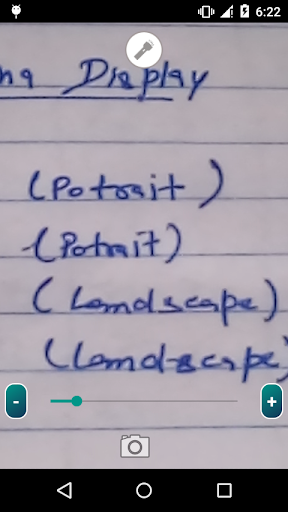 6:22
na Display
(Potrait)
(Potrait)
(Landscape)
(Landscape)
- +